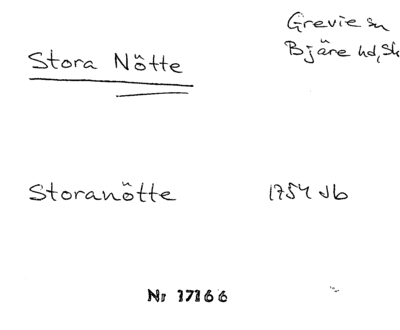 Grevie sn
Stora Nötte
Bjäre hd, Sk
Storanötte 1754 Jb
Nr 17166